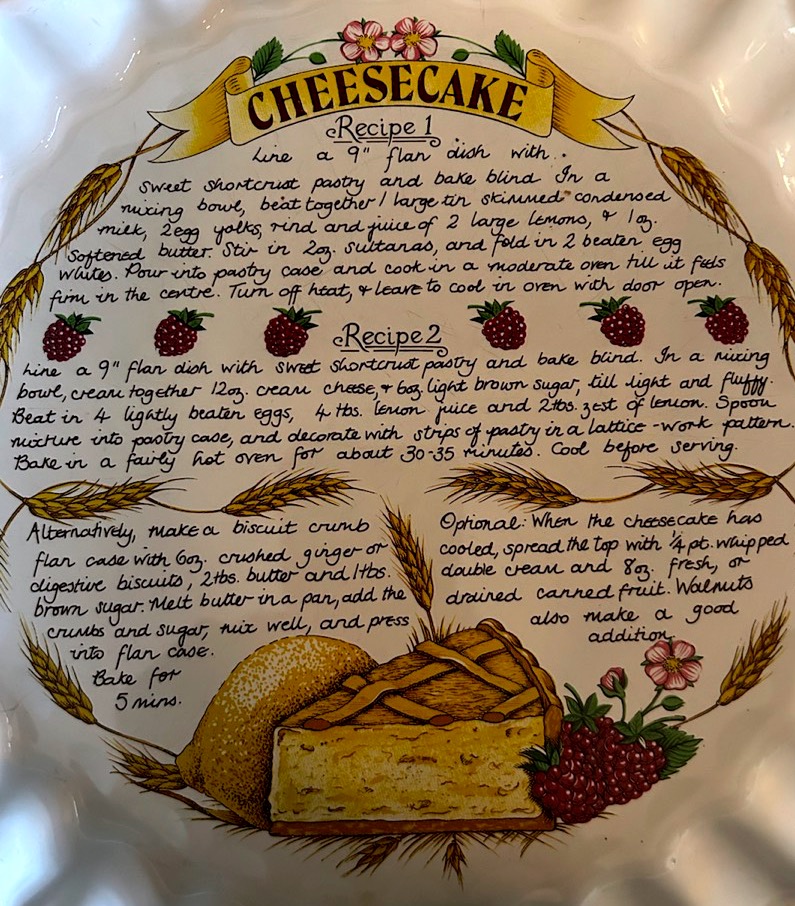 CHEESECAKE
Recipe 1
Line a 9" flan dish with
sweet shortcrust pastry and bake blind. In a
mixing bowl, beat together 1 large tin skimmed condensed
milk, 2 egg yolks, rind and juice of 2 large lemons, & 1oz.
softened butter. Stir in 2oz. sultanas, and fold in 2 beaten egg
whites. Pour into pastry case and cook in a moderate oven till it feels
firm in the centre. Turn off heat, & leave to cool in oven with door open.
Recipe 2
Line a 9" flan dish with sweet shortcrust pastry and bake blind. In a mixing
bowl, cream together 12oz. cream cheese, & 6oz. light brown sugar, till light and fluffy.
Beat in 4 lightly beaten eggs, 4 tbs. lemon juice and 2tbs. zest of lemon. Spoon
mixture into pastry case, and decorate with strips of pastry in a lattice-work pattern.
Bake in a fairly hot oven for about 30-35 minutes. Cool before serving.
Alternatively, make a biscuit crumb
flan case with 6oz. crushed ginger or
digestive biscuits, 2tbs. butter and 1tbs.
brown sugar. Melt butter in a pan, add the
crumbs and sugar, mix well, and press
into flan case.
Bake for
5 mins.
Optional: When the cheesecake has
cooled, spread the top with ¼ pt. whipped
double cream and 8oz. fresh, or
drained canned fruit. Walnuts
also make a good
addition.